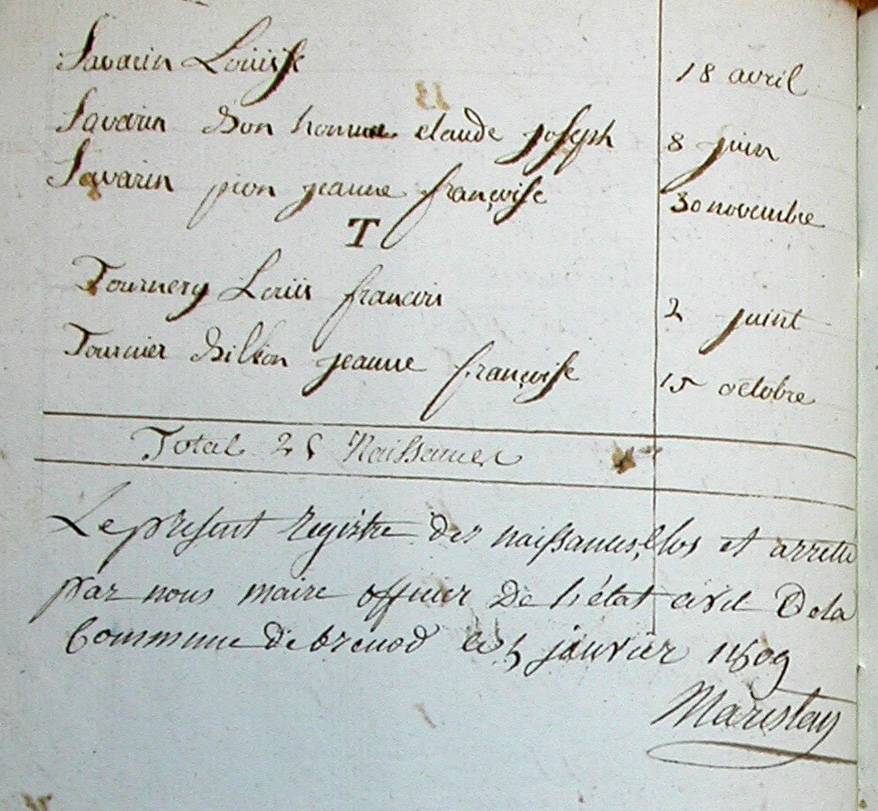 Savarin Louise 18 avril
Savarin bon homme claude joseph 8 juin
Savarin pion jeanne françoise 30 novembre
T
Tournery Louis francois 2 juint
Tournier billion jeanne françoise 15 octobre
Total 25 Naissances
Le present registre des naissances, clos et arretté
par nous maire officier De l'état civil De la
Commune de brenod le 5 janvier 1809